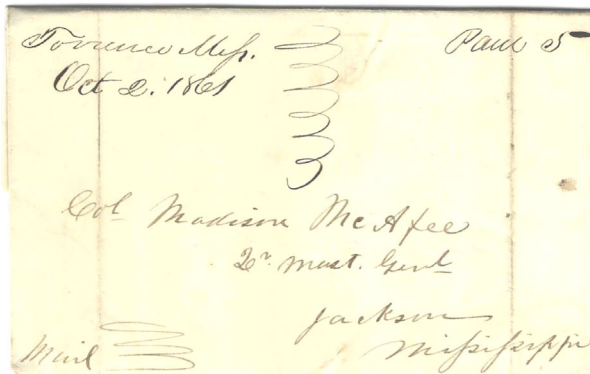 Torrence Miss. Paid 5
Oct 2. 1861
Col Madison McAfee
Qr. Mast. Genl
Jackson
Mississippi
Mail